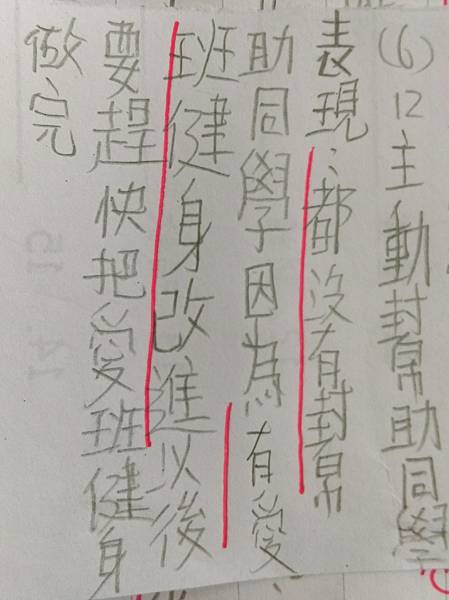 (6)12主動幫助同學
表現:都沒有幫
助同學因為有愛
班健身改進以後
要趕快把愛班健身
做完